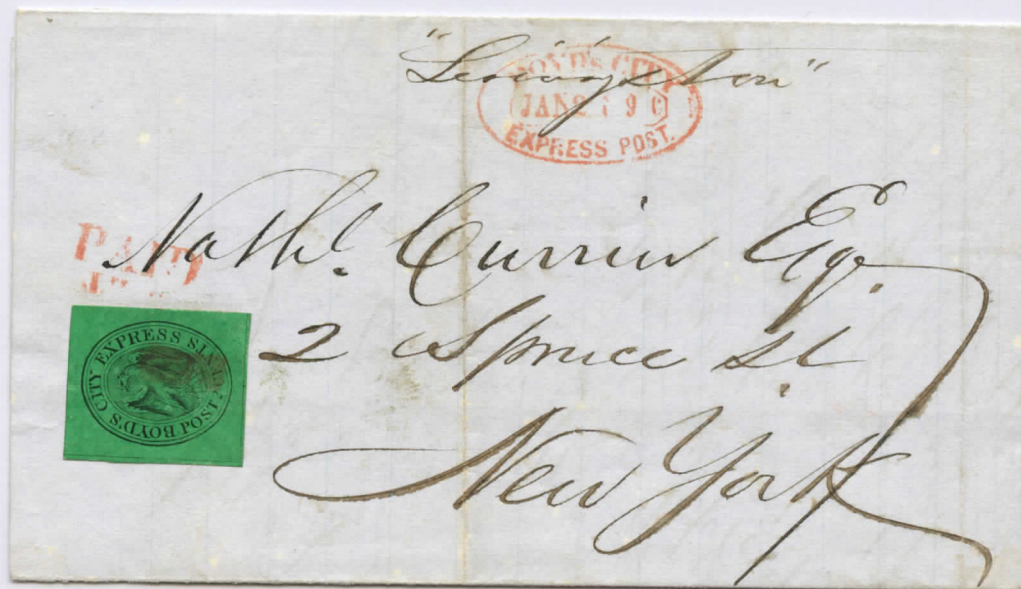 "Livingston"
BOYD'S CITY
JAN 2
EXPRESS POST.
PAID
Nathl. Currier Esqr.
2 Spruce St
New York
BOYD'S CITY EXPRESS POST